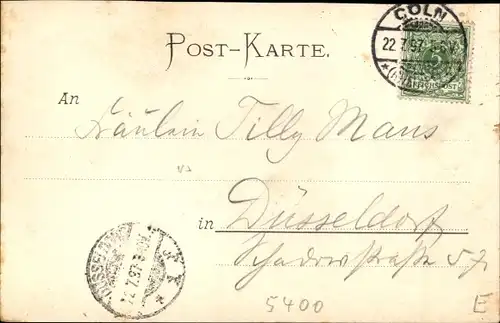 CÖLN
22.7.97
POST-KARTE.
An
Fräulein Tilly Maus
in Düsseldorf
Schadowstraße 57
DÜSSELDORF
22.7.97
5400
E